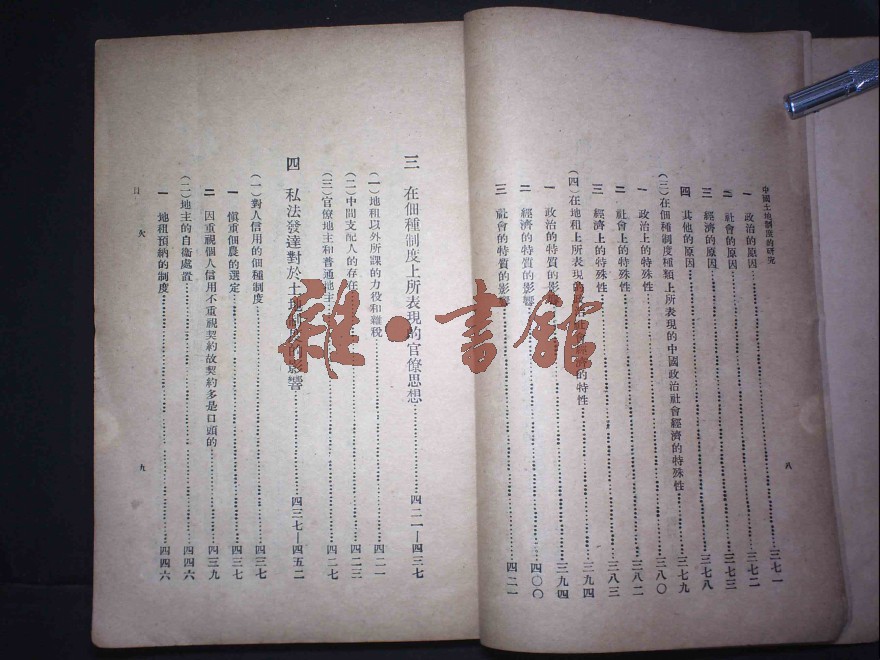 中國土地制度的研究
一　政治的原因……三七一
二　社會的原因……三七二
三　經濟的原因……三七三
四　其他的原因……三七八
(三)在佃種制度種類上所表現的中國政治社會經濟的特殊性……三七九
一　政治上的特殊性……三八〇
二　社會上的特殊性……三八二
三　經濟上的特殊性……三八三
(四)在地租上所表現的政治社會經濟的特性……三九四
一　政治的特質的影響……三九四
二　經濟的特質的影響……四〇〇
三　社會的特質的影響……四二一
八
三　在佃種制度上所表現的官僚思想……四二一—四三七
(一)地租以外所課的力役和雜稅……四二一
(二)中間支配人的存在……四二三
(三)官僚地主和普通地主……四二七
四　私法發達對於土地制度的影響……四三七—四五二
(一)對人信用的佃種制度……四三七
一　愼重佃農的選定……四三七
二　因重視個人信用不重視契約故契約多是口頭的……四三九
(二)地主的自衞處置……四四六
一　地租預納的制度……四四六
目次
九
雜·書館